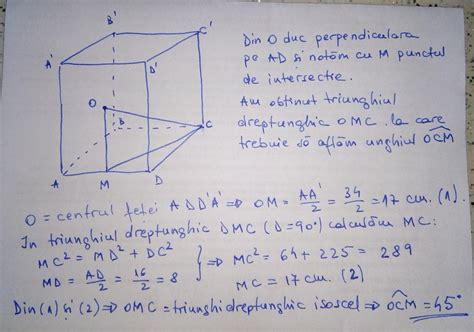 B'
C'
A'
D'
O
B
C
A
M
D
Din O duc perpendiculara
pe AD și notăm cu M punctul
de intersecție.
Am obținut triunghiul
dreptunghic OMC la care
trebuie să aflăm unghiul OCM
O = centrul feței ADD'A' ⇒ OM = AA'/2 = 34/2 = 17 cm. (1).
În triunghiul dreptunghic DMC (D=90°) calculăm MC:
MC² = MD² + DC²
MD = AD/2 = 16/2 = 8
} ⇒ MC² = 64 + 225 = 289
MC = 17 cm. (2)
Din (1) și (2) ⇒ OMC = triunghi dreptunghic isoscel ⇒ OCM = 45°